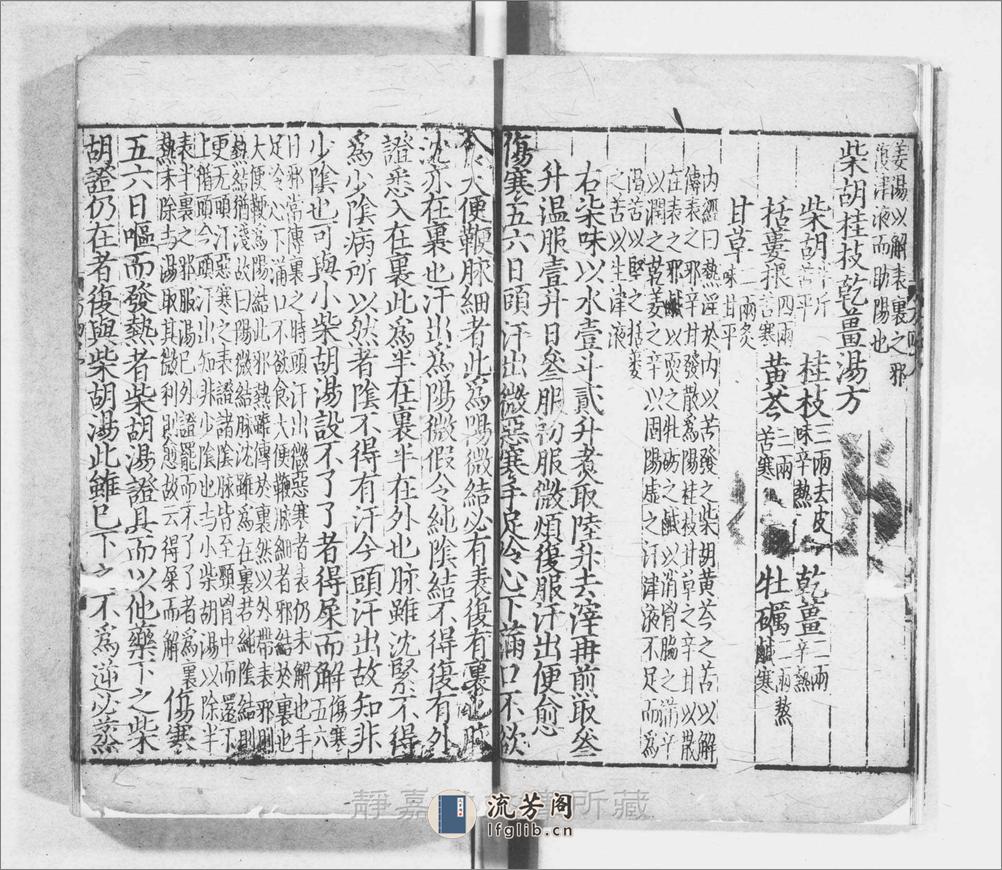 姜湯以解表裏之邪
復津液而助陽也
柴胡桂枝乾薑湯方
柴胡半斤苦平 桂枝三兩去皮味辛熱 乾薑二兩辛熱
栝蔞根四兩苦寒 黃芩三兩苦寒 牡礪二兩熬鹹寒
甘草二兩炙味甘平
內經曰熱淫於內以苦發之柴胡黃芩之苦以解
傳表之邪辛甘發散為陽桂枝甘草之辛甘以散
在表之邪鹹以耎之牡蠣之鹹以消胷脇之滿辛
以潤之乾姜之辛以固陽虛之汗津液不足而為
渴苦以堅之栝蔞
之苦以生津液
右柒味以水壹斗貳升煑取陸升去滓再煎取叄
升温服壹升日叄服初服微煩復服汗出便愈
傷寒五六日頭汗出微惡寒手足冷心下滿口不欲
食大便鞕脉細者此為陽微結必有表復有裏也脉
沈亦在裏也汗出為陽微假令純陰結不得復有外
證悉入在裏此為半在裏半在外也脉雖沈緊不得
為少陰病所以然者陰不得有汗今頭汗出故知非
少陰也可與小柴胡湯設不了了者得屎而解傷寒五六
日邪當傳裏之時頭汗出微惡寒者表仍未解也手
足冷心下滿口不欲食大便鞕脉細者邪結於裏也
大便鞕為陽結此邪熱雖傳於裏然以外帶表邪則
熱結猶淺故曰陽微結脉沈雖為在裏若純陰結則
更无頭汗惡寒之表證諸陰脉皆至頸胷中而還不
上循頭今頭汗出知非少陰也與小柴胡湯以除半
表半裏之邪服湯已外證罷而不了了者為裏
熱未除與湯取其微利則愈故云得屎而解 傷寒
五六日嘔而發熱者柴胡湯證具而以他藥下之柴
胡證仍在者復與柴胡湯此雖已下之不為逆必蒸
靜嘉 所藏
流芳阁
lfglib.cn